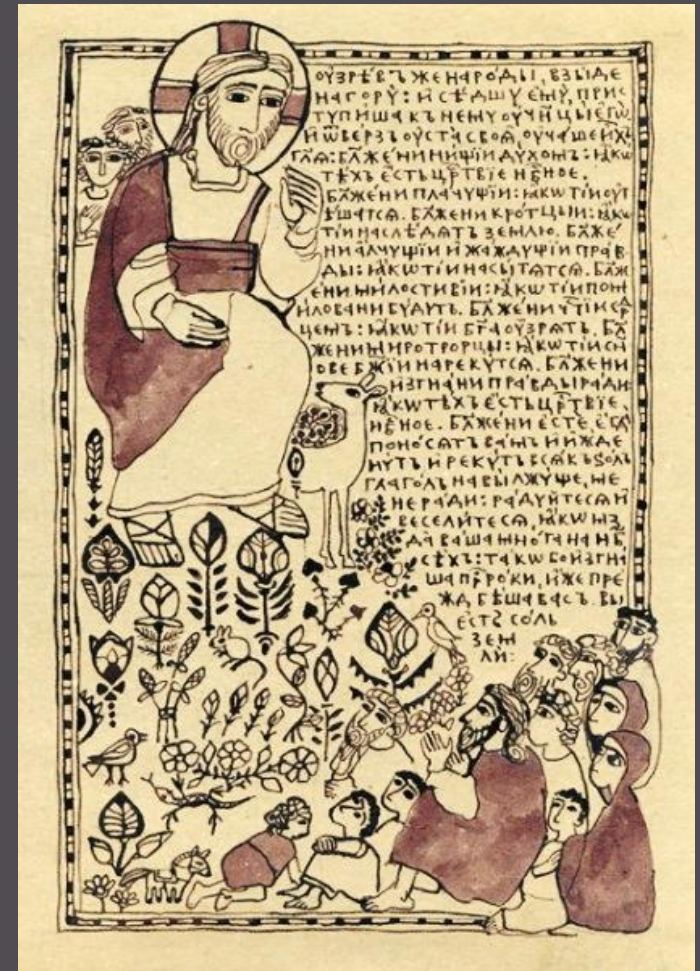 ОУЗРѢВЪ ЖЕ НАРОДЫ, ВЗЫДЕ
НА ГОРУ: И СѢДШУ ЕМУ, ПРИС
ТУПИША К НЕМУ ОУЧН҃ЦЫ ЕГѠ
И ѾВЕРЗЪ ОУСТА СВОѦ, ОУЧАШЕ ИХЪ
ГЛ҃Ѧ: БЛ҃ЖЕНИ НИЩIИ ДУХОМЪ: ꙖКѠ
ТѢХЪ ЕСТЬ ЦР҃ТВIЕ НБ҃НОЕ.
БЛ҃ЖЕНИ ПЛАЧУЩIИ: ꙖКѠ ТIИ ОУТ
ѢШАТСѦ. БЛ҃ЖЕНИ КРОТЦЫИ: ꙖКѠ
ТIИ НАСЛѢДѦТЪ ЗЕМЛЮ. БЛ҃ЖЕ
НИ АЛЧУЩIИ И ЖАЖДУЩIИ ПРАВ
ДЫ: ꙖКѠ ТIИ НАСЫТѦТСѦ. БЛ҃Ж
ЕНИ МИЛОСТИВIИ: ꙖКѠ ТIИ ПОМ
ИЛОВАНИ БУДУТЬ. БЛ҃ЖЕНИ ЧТ҃IИ СЕР
ЦЕМЪ: ꙖКѠ ТIИ БГ҃А ОУЗРѦТЬ. БЛ҃
ЖЕНИ МИРОТРОРЦЫ: ꙖКѠ ТIИ СЫ
ОВЕ БЖ҃IИ НАРЕКУТСѦ. БЛ҃ЖЕНИ
ИЗГНАНИ ПРАВДЫ РАДИ
ꙖКѠ ТѢХЪ ЕСТЬ ЦР҃ТВIЕ
НБ҃НОЕ. БЛ҃ЖЕНИ ЕСТЕ, ЕГДА
ПОНОСѦТЪ ВАМЪ И ИЖДЕ
НУТЪ И РЕКУТЪ ВСѦКЪ ЅОЛЪ
ГЛАГОЛЪ НА ВЫ ЛЖУЩЕ, МЕ
НЕ РАДИ: РАДУЙТЕСѦ И
ВЕСЕЛИТЕСѦ, ꙖКѠ МЗ
ДА ВАША МНОГА НА НБ҃
СѢХЪ: ТАКѠ БО ИЗГНА
ША ПР҃РОКИ, ИЖЕ ПРЕ
ЖД БѢША ВАСЪ. ВЫ
ЕСТЕ СОЛЬ
ЗЕМ
ЛИ: